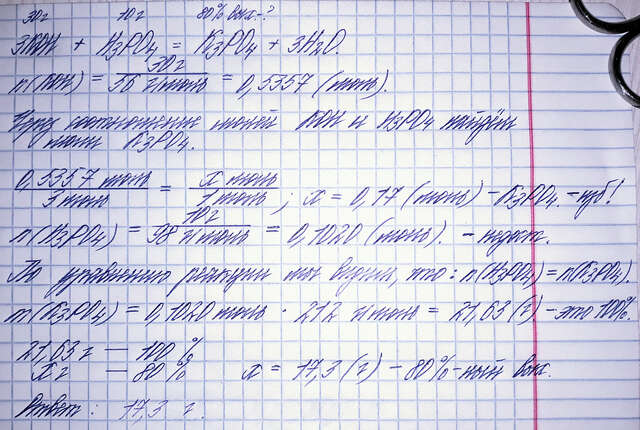 30г 10г 80% вых-?
3KOH + H3PO4 = K3PO4 + 3H2O.
n(KOH) = 30г / 56 г/моль = 0,5357 (моль).
Через соотношение молей KOH и H3PO4 найдём
моли K3PO4.
0,5357 моль / 3 моль = x моль / 1 моль ; x = 0,17 (моль) - K3PO4. - изб!
n(H3PO4) = 10г / 98 г/моль = 0,1020 (моль). - недост.
По уравнению реакции мы видим, что: n(H3PO4) = n(K3PO4).
m(K3PO4) = 0,1020 моль · 212 г/моль = 21,63 (г). - это 100%.
21,63 г — 100 %
x г — 80 % x = 17,3 (г) - 80%-ный вых.
Ответ: 17,3 г.